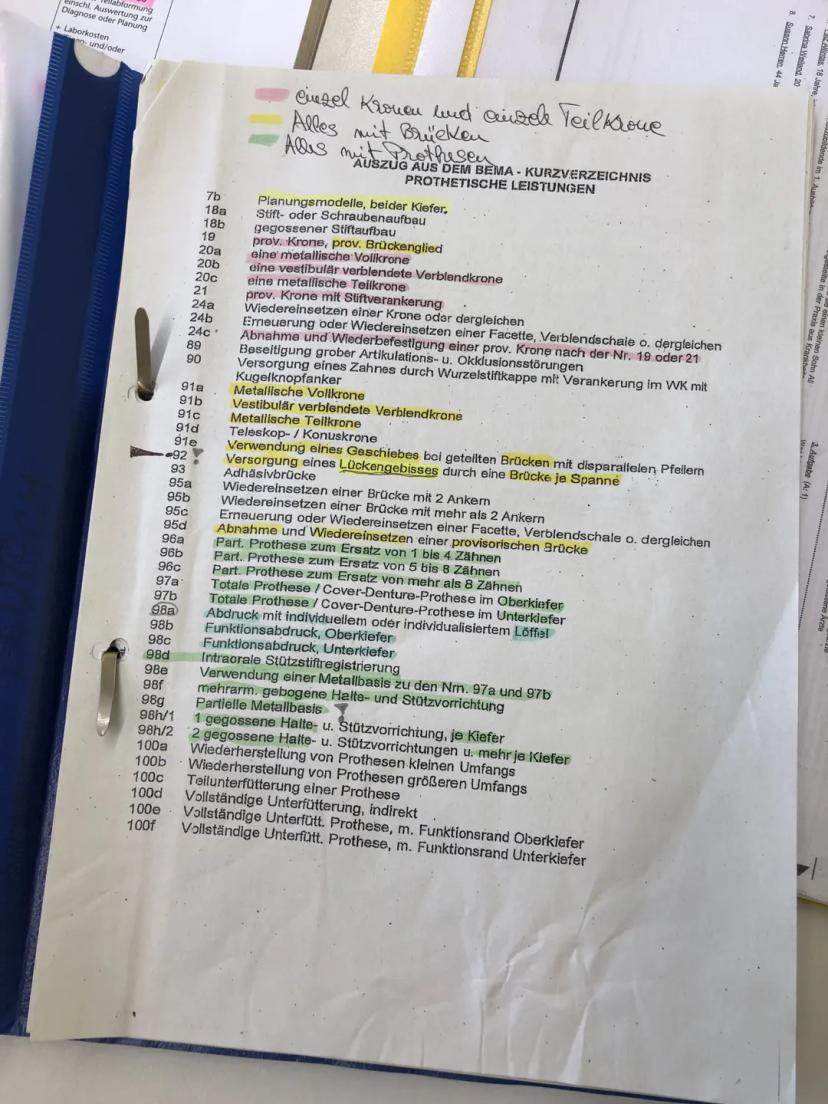 einschl. Auswertung zur
Diagnose oder Planung
+ Laborkosten
und/oder
einzel Kronen und einzele Teilkrone
Alles mit Brücken
Alles mit Prothesen
AUSZUG AUS DEM BEMA - KURZVERZEICHNIS
PROTHETISCHE LEISTUNGEN
7b Planungsmodelle, beider Kiefer.
18a Stift- oder Schraubenaufbau
18b gegossener Stiftaufbau
19 prov. Krone, prov. Brückenglied
20a eine metallische Vollkrone
20b eine vestibulär verblendete Verblendkrone
20c eine metallische Teilkrone
21 prov. Krone mit Stiftverankerung
24a Wiedereinsetzen einer Krone oder dergleichen
24b Erneuerung oder Wiedereinsetzen einer Facette, Verblendschale o. dergleichen
24c Abnahme und Wiederbefestigung einer prov. Krone nach der Nr. 19 oder 21
89 Beseitigung grober Artikulations- u. Okklusionsstörungen
90 Versorgung eines Zahnes durch Wurzelstiftkappe mit Verankerung im WK mit
Kugelknopfanker
91a Metallische Vollkrone
91b Vestibulär verblendete Verblendkrone
91c Metallische Teilkrone
91d Teleskop- / Konuskrone
91e Verwendung eines Geschiebes bei geteilten Brücken mit disparallelen Pfeilern
92 Versorgung eines Lückengebisses durch eine Brücke je Spanne
93 Adhäsivbrücke
95a Wiedereinsetzen einer Brücke mit 2 Ankern
95b Wiedereinsetzen einer Brücke mit mehr als 2 Ankern
95c Erneuerung oder Wiedereinsetzen einer Facette, Verblendschale o. dergleichen
95d Abnahme und Wiedereinsetzen einer provisorischen Brücke
96a Part. Prothese zum Ersatz von 1 bis 4 Zähnen
96b Part. Prothese zum Ersatz von 5 bis 8 Zähnen
96c Part. Prothese zum Ersatz von mehr als 8 Zähnen
97a Totale Prothese / Cover-Denture-Prothese im Oberkiefer
97b Totale Prothese / Cover-Denture-Prothese im Unterkiefer
98a Abdruck mit individuellem oder individualisiertem Löffel
98b Funktionsabdruck, Oberkiefer
98c Funktionsabdruck, Unterkiefer
98d Intraorale Stützstiftregistrierung
98e Verwendung einer Metallbasis zu den Nrn. 97a und 97b
98f mehrarm. gebogene Halte- und Stützvorrichtung
98g Partielle Metallbasis
98h/1 1 gegossene Halte- u. Stützvorrichtung, je Kiefer
98h/2 2 gegossene Halte- u. Stützvorrichtungen u. mehr je Kiefer
100a Wiederherstellung von Prothesen kleinen Umfangs
100b Wiederherstellung von Prothesen größeren Umfangs
100c Teilunterfütterung einer Prothese
100d Vollständige Unterfütterung, indirekt
100e Vollständige Unterfütt. Prothese, m. Funktionsrand Oberkiefer
100f Vollständige Unterfütt. Prothese, m. Funktionsrand Unterkiefer